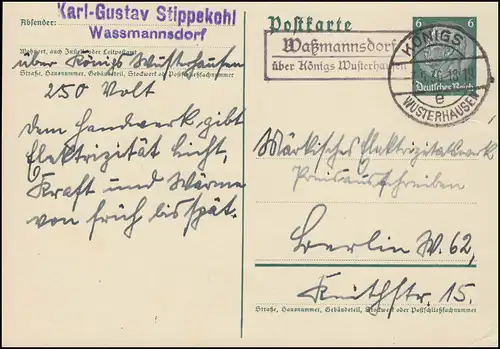 Absender:
Karl-Gustav Stippekohl
Wassmannsdorf
Wohnort, auch Zustell- oder Leitpostamt
über Königs Wusterhausen
Straße, Hausnummer, Gebäudeteil, Stockwerk od. Postschließfachnummer
250 Volt
Dem Handwerk gibt
Elektrizität Licht,
Kraft und Wärme
von früh bis spät.
Postkarte
Waßmannsdorf
über Königs Wusterhausen
6 6
Deutsches Reich
KÖNIGS
e
WUSTERHAUSEN
Märkisches Elektrizitätswerk
Preisausschreiben
Berlin W. 62,
Keithstr. 15.
Straße, Hausnummer, Gebäudeteil, Stockwerk oder Postschließfachnummer